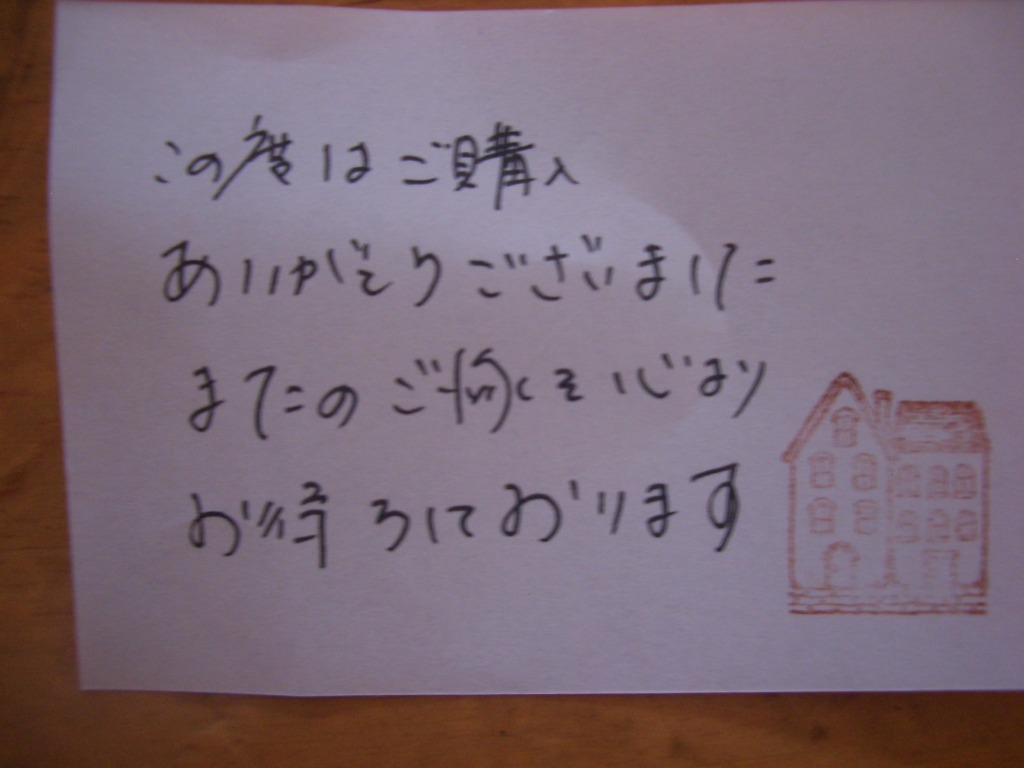 この度はご購入
ありがとうございました
またのご縁を心より
お待ちしております